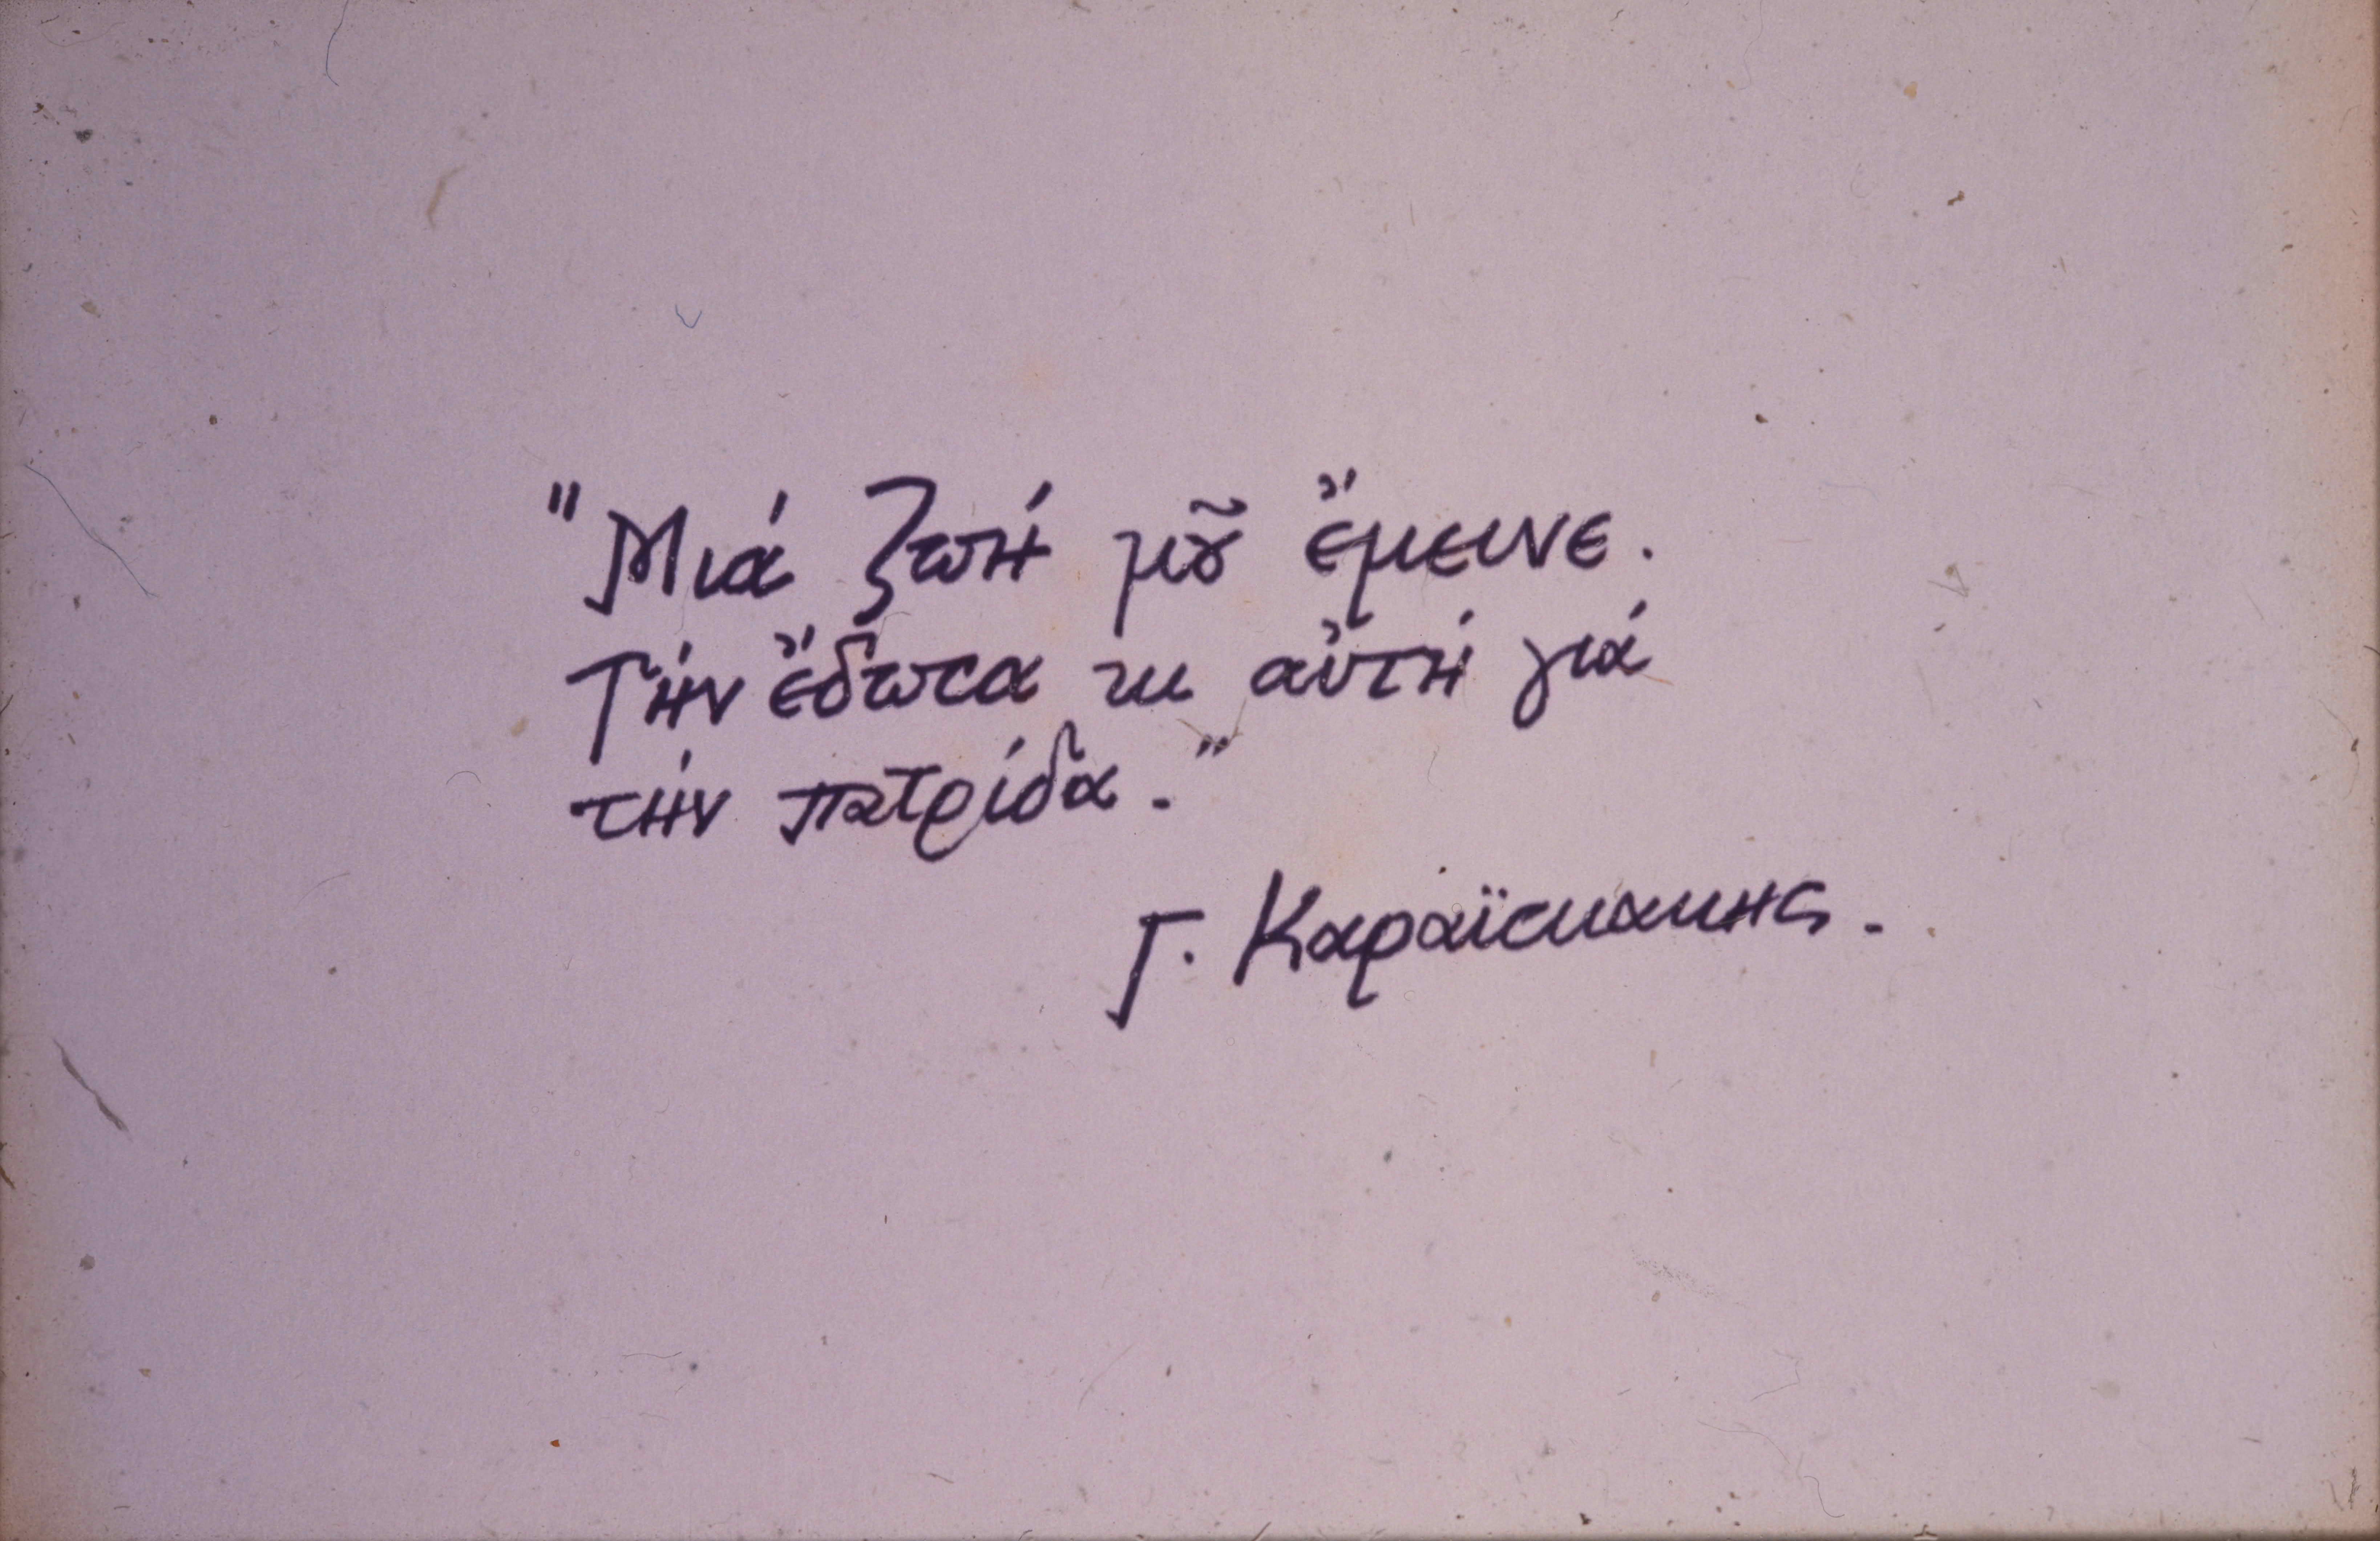 "Μιά ζωή μοῦ ἔμεινε.
Τήν ἔδωσα κι αὐτή γιά
τήν πατρίδα."
Γ. Καραϊσκακης.